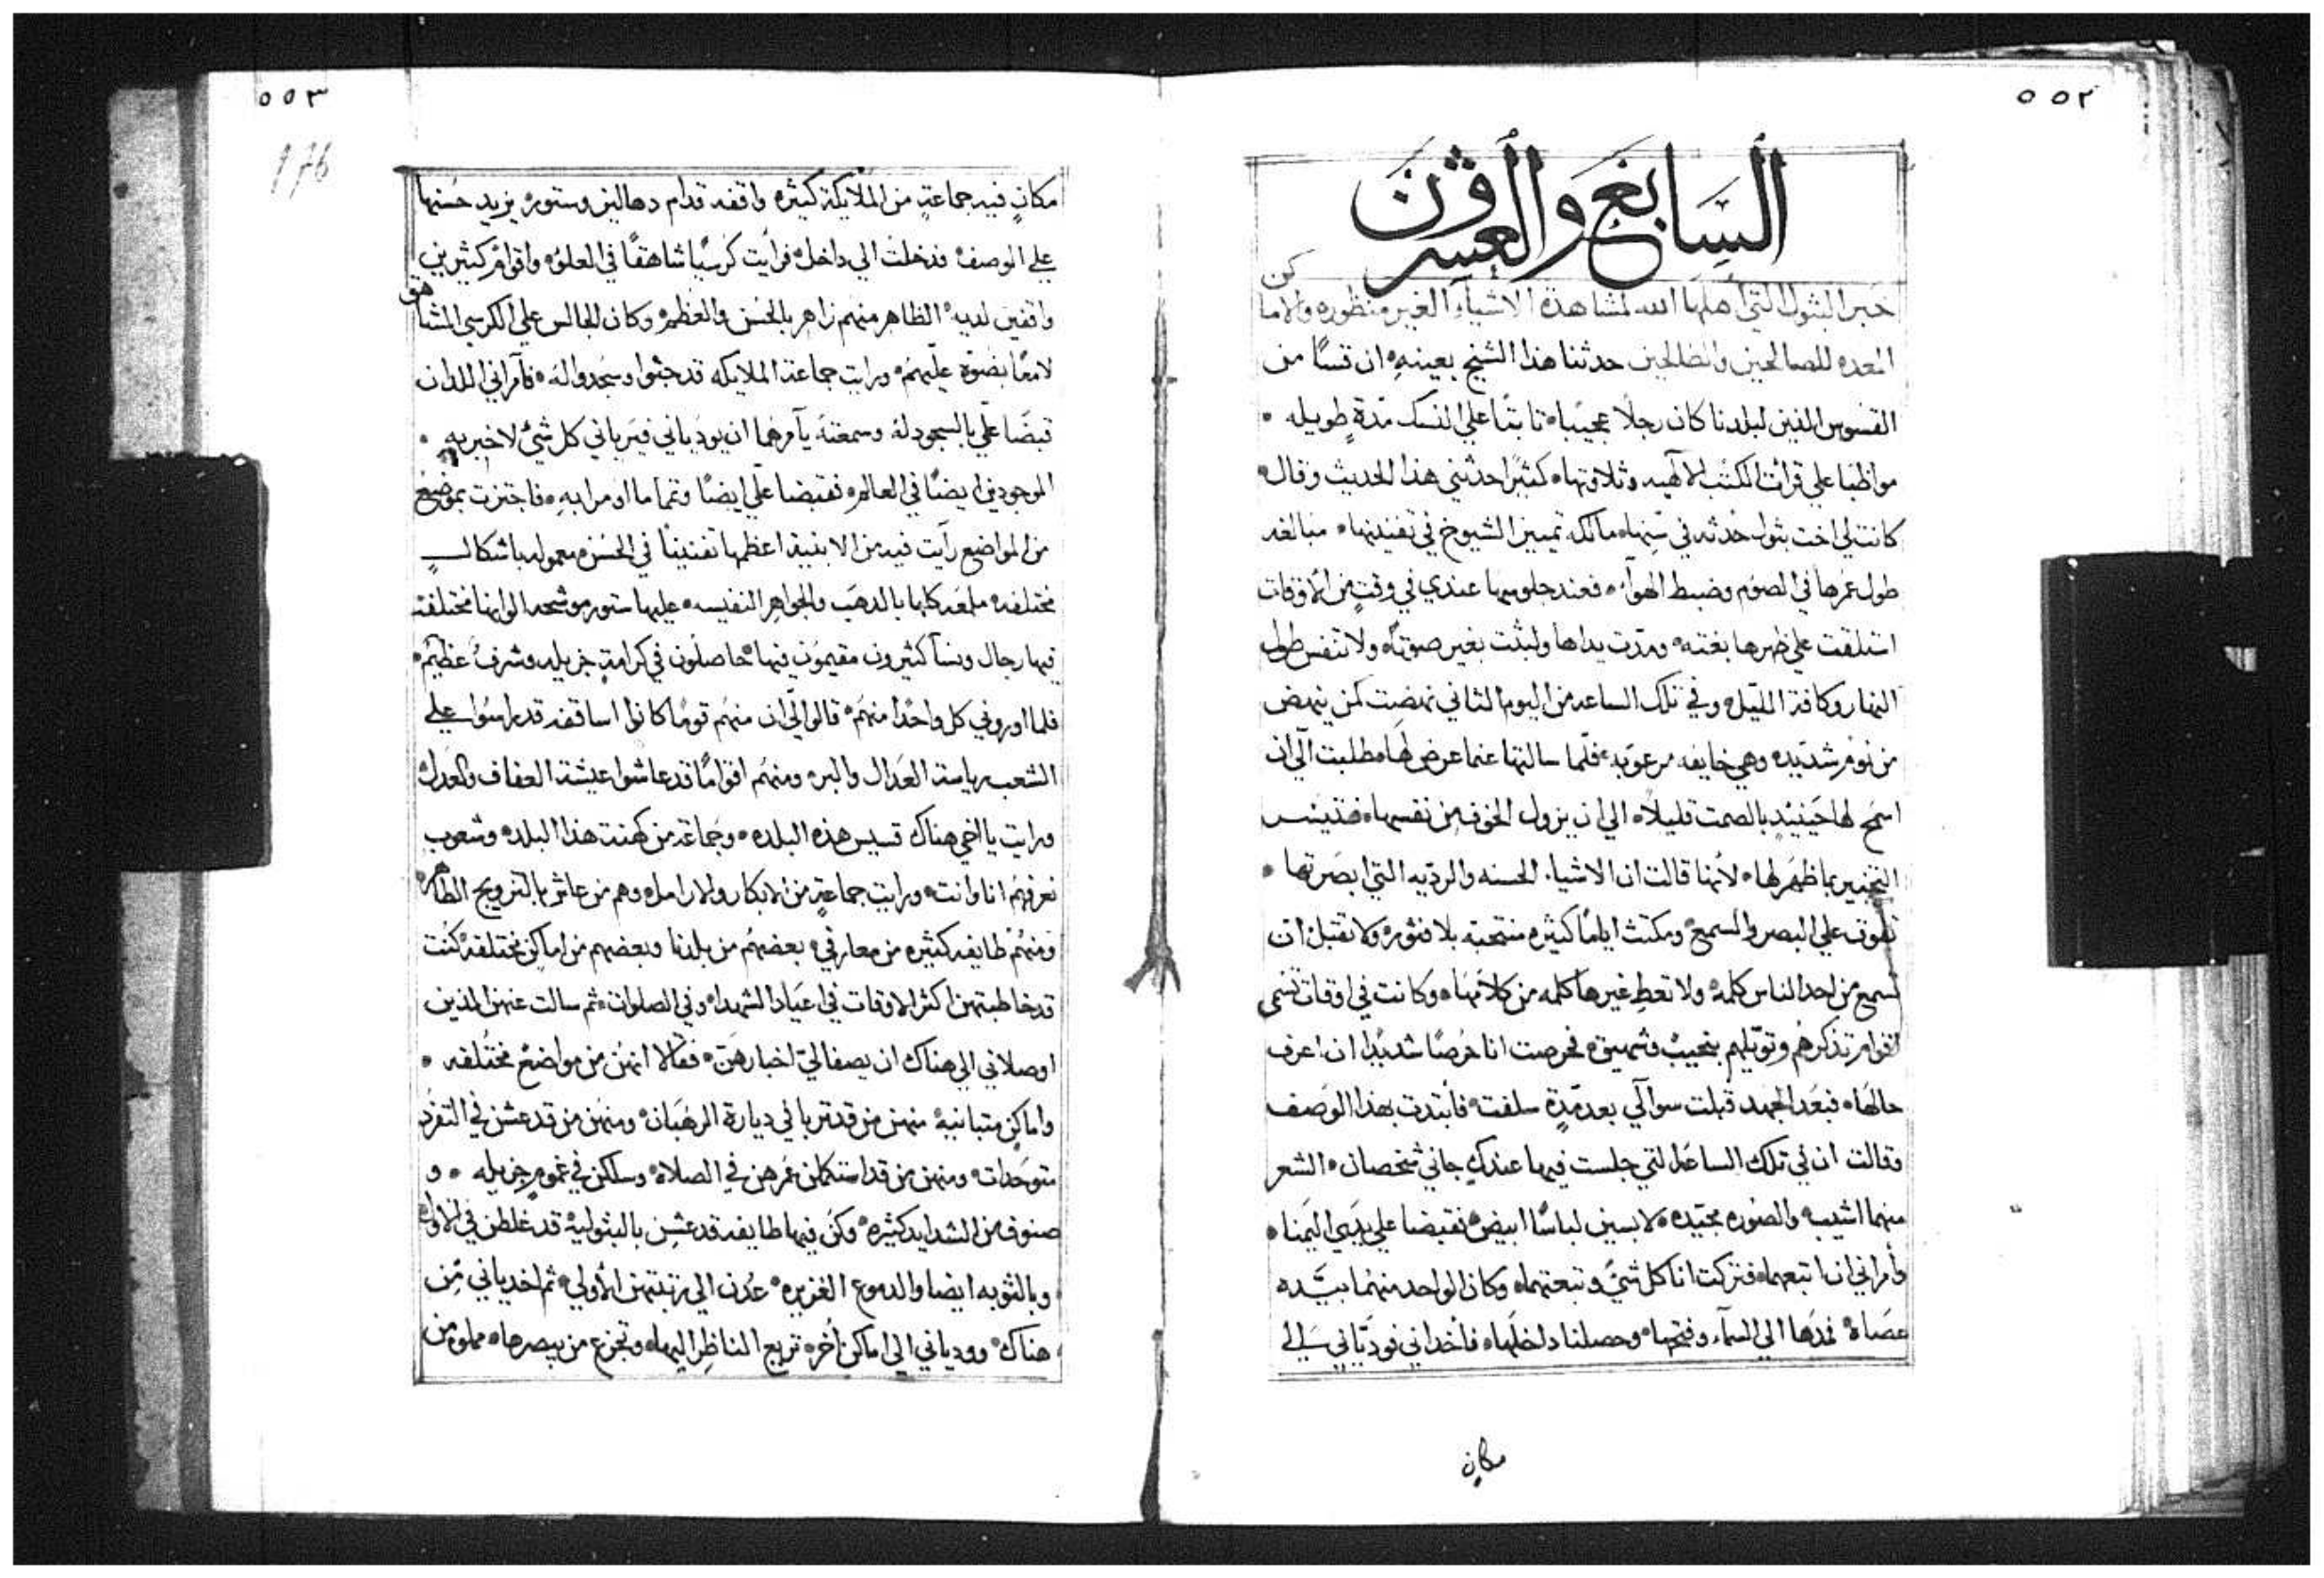 ٥٥٢
السابع والعشرون
خبر البتول التي أهلها الله لمشاهدة الاشيآء الغير منظوره والاماكن
المعده للصالحين والطالحين حدثنا هذا الشيخ بعينهِ ان قسًا من
القسوس الذين لبلدنا كان رجلًا عجيبًا ثابتًا علي النسك مدةٍ طويله
مواظبا علي قرات الكتب الالهيه وتلاوتها كثيرًا حدثني هذا الحديث وقال
كانت لي اخت بتول حدثه في سنها مالكه تمييز الشيوخ في تفنينها مبالغه
طول عمرها في الصوم وضبط الهوآء فعند جلوسها عندي في وقتٍ من الاوقات
استلقت علي ظهرها بغته ومدت يداها ولبثت بغير صوتٍ ولا تنفس طول
النهار وكافة الليل وفي تلك الساعه من اليوم الثاني نهضت كمن ينهض
من نومٍ شديده وهي خايفه مرعوبه فلما سالتها عما عرض لها طلبت الي ان
اسمح لها حينيذٍ بالصمت قليلًا الي ان يزول الخوف من نفسها
التخبير بما ظهر لها لانها قالت ان الاشياء الحسنه والرديه التي ابصرتها
تفوق علي البصر والسمع ومكثت ايامًا كثيره منتحبه بلا فتوره ولا تقبل ان
تسمع من احد الناس كلمه ولا تعط غيرها كلمه من كلامها وكانت في اوقات تسمي
اقوام تذكرهم وتولهم بنحيب وشهيق فحرصت انا حرصًا شديدًا ان اعرف
حالها فبعد الجهد قبلت سوالي بعد مدةٍ سلفت فابتدت بهذا الوصف
وقالت ان في تلك الساعه التي جلست فيها عندك جاني شخصان الشعر
منهما اشيب والصوره مجيده لابسين لباسًا ابيض فقبضا علي يدي اليمنا
وأمراني ان اتبعهما فتركت انا كل شيء وتبعتهما وكان الواحد منهما بيده
عصاة فمدها الي السمآء وفتحها وحصلنا داخلها فأخداني فودياني الي
مكان
٥٥٣
176
مكانٍ فيه جماعةٍ من الملايكة كثيره واقفه قدام دهاليز وستوره يزيد حسنها
علي الوصف فدخلت الي داخل فرايت كرسيًا شاهقًا في العلو واقوامٌ كثيرين
واقفين لديه الظاهر منهم زاهر بالحسن والعظم وكان الجالس علي الكرسي المشاهق
لامعًا بضوّه عليهم ورايت جماعة الملايكه قد جثوا وسجدوا له فأمراني اللدان
قبضا علي بالسجود له وسمعته يآمرهما ان يودياني فيرياني كل شئ لاخبر به
الموجودين ايضًا في العالم فقبضا علي ايضًا وتمما ما اومرا به فاجتزت بموضع
من المواضع رآيت فيه من الابنيه اعظمها تفنينًا في الحسن معموله باشكالٍ
مختلفه ملمعه كلها بالدهب والجواهر النفيسه عليها ستور موشحه الوانها مختلفه
فيها رجال ونسأ كثيرون مقيمون فيها حاصلون في كرامةٍ جزيله وشرفٌ عظيم
فلما اوروني كل واحدًا منهم قالوا لي ان منهم قومًا كانوا اساقفه قد راسوا علي
الشعب رياسة العدال والبر ومنهم اقوامًا قد عاشوا عيشة العفاف والعدل
ورايت يا اخي هناك قسيس هذه البلده وجماعة من كهنت هذا البلده وشعوب
نعرفهم انا وانت ورايت جماعةٍ من الابكار والارامل وهم من عاش بالتزويج الطاهره
ومنهم طايفه كثيره من معارفي بعضهم من بلدنا وبعضهم من اماكن مختلفه كنت
قد خاطبتهن اكثر الاوقات في اعياد الشهداء وفي الصلوات ثم سالت عنهن الذين
اوصلاني الي هناك ان يصفا لي اخبارهن فقالا انهن من مواضع مختلفه
واماكن متباينه منهن من قد تربا في ديارة الرهبان ومنهن من قد عشن في التفرد
متوحدات ومنهن من قد استكملن عمرهن في الصلاة وسلكن في غمومٍ جزيله و
صنوف من الشدايد كثيره وكن فيها طايفه قد عشن بالبتوليه قد غلطن في الاول
وبالتوبه ايضا والدموع الغزيره عُدن الي رتبتهن الأولي ثم اخدياني من
هناك وودياني الي اماكن أخره تريع الناظر اليها وتجزع من يبصرها مملو من